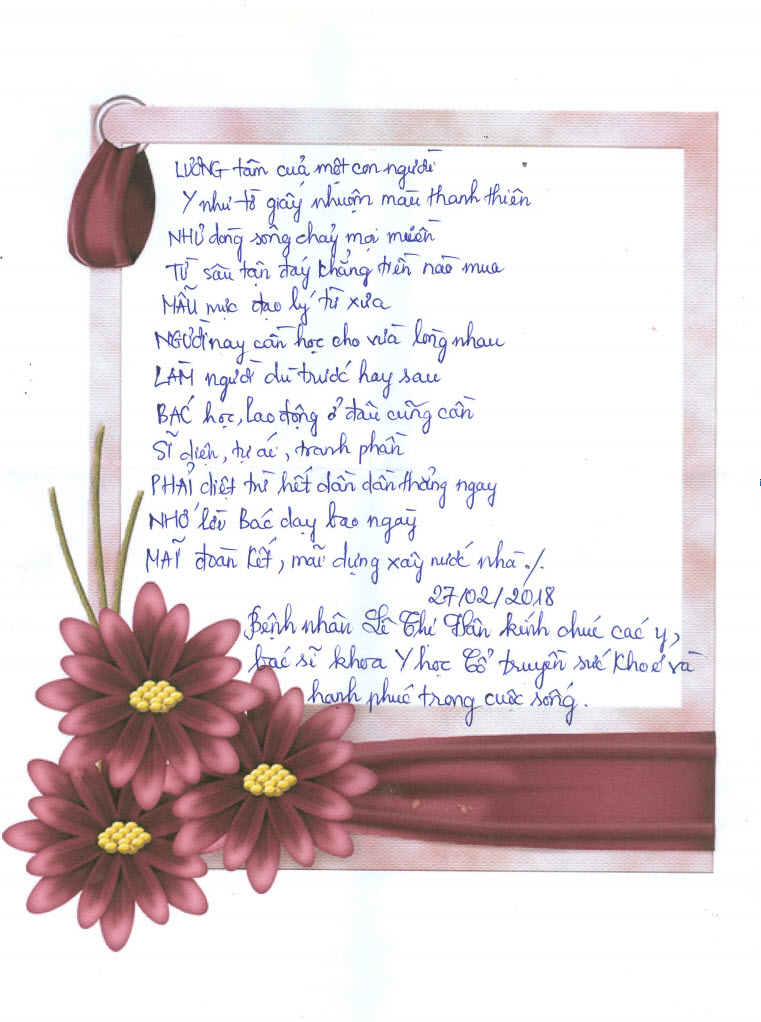 LƯƠNG tâm của một con người
Y như tờ giấy nhuộm màu thanh thiên
NHƯ dòng sông chảy mọi miền
TỪ sâu tận đáy chẳng tiền nào mua
MẪU mực đạo lý từ xưa
NGƯỜI nay cần học cho vừa lòng nhau
LÀM người dù trước hay sau
BÁC học, lao động ở đâu cũng cần
SĨ diện, tự ái, tranh phần
PHẢI diệt trừ hết dần dần tháng ngay
NHỚ lời Bác dạy bao ngày
MÃI đoàn kết, mãi dựng xây nước nhà ./.
27/02/2018
Bệnh nhân Lê Thị Hân kính chúc các y,
bác sĩ khoa Y học Cổ truyền sức khoẻ và
hạnh phúc trong cuộc sống.